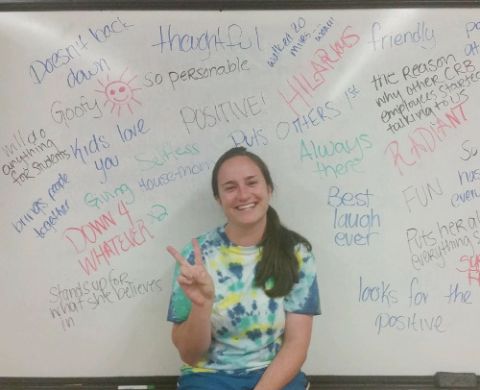 Doesn't back
down
thoughtful
walked 20
miles
HILARIOUS
friendly
so personable
Goofy
POSITIVE!
OTHERS 1st
Puts
the Reason
why other CRB
employees started
talking to us
RADIANT
will do
anything
for students
Kids love
you
Selfless
House-mom
Always
there
So
brings people
together
Giving
DOWN 4
WHATEVER x2
Best
laugh
ever
FUN
Puts her a
everything s
Stands up for
what she believes
in
looks for the
positive